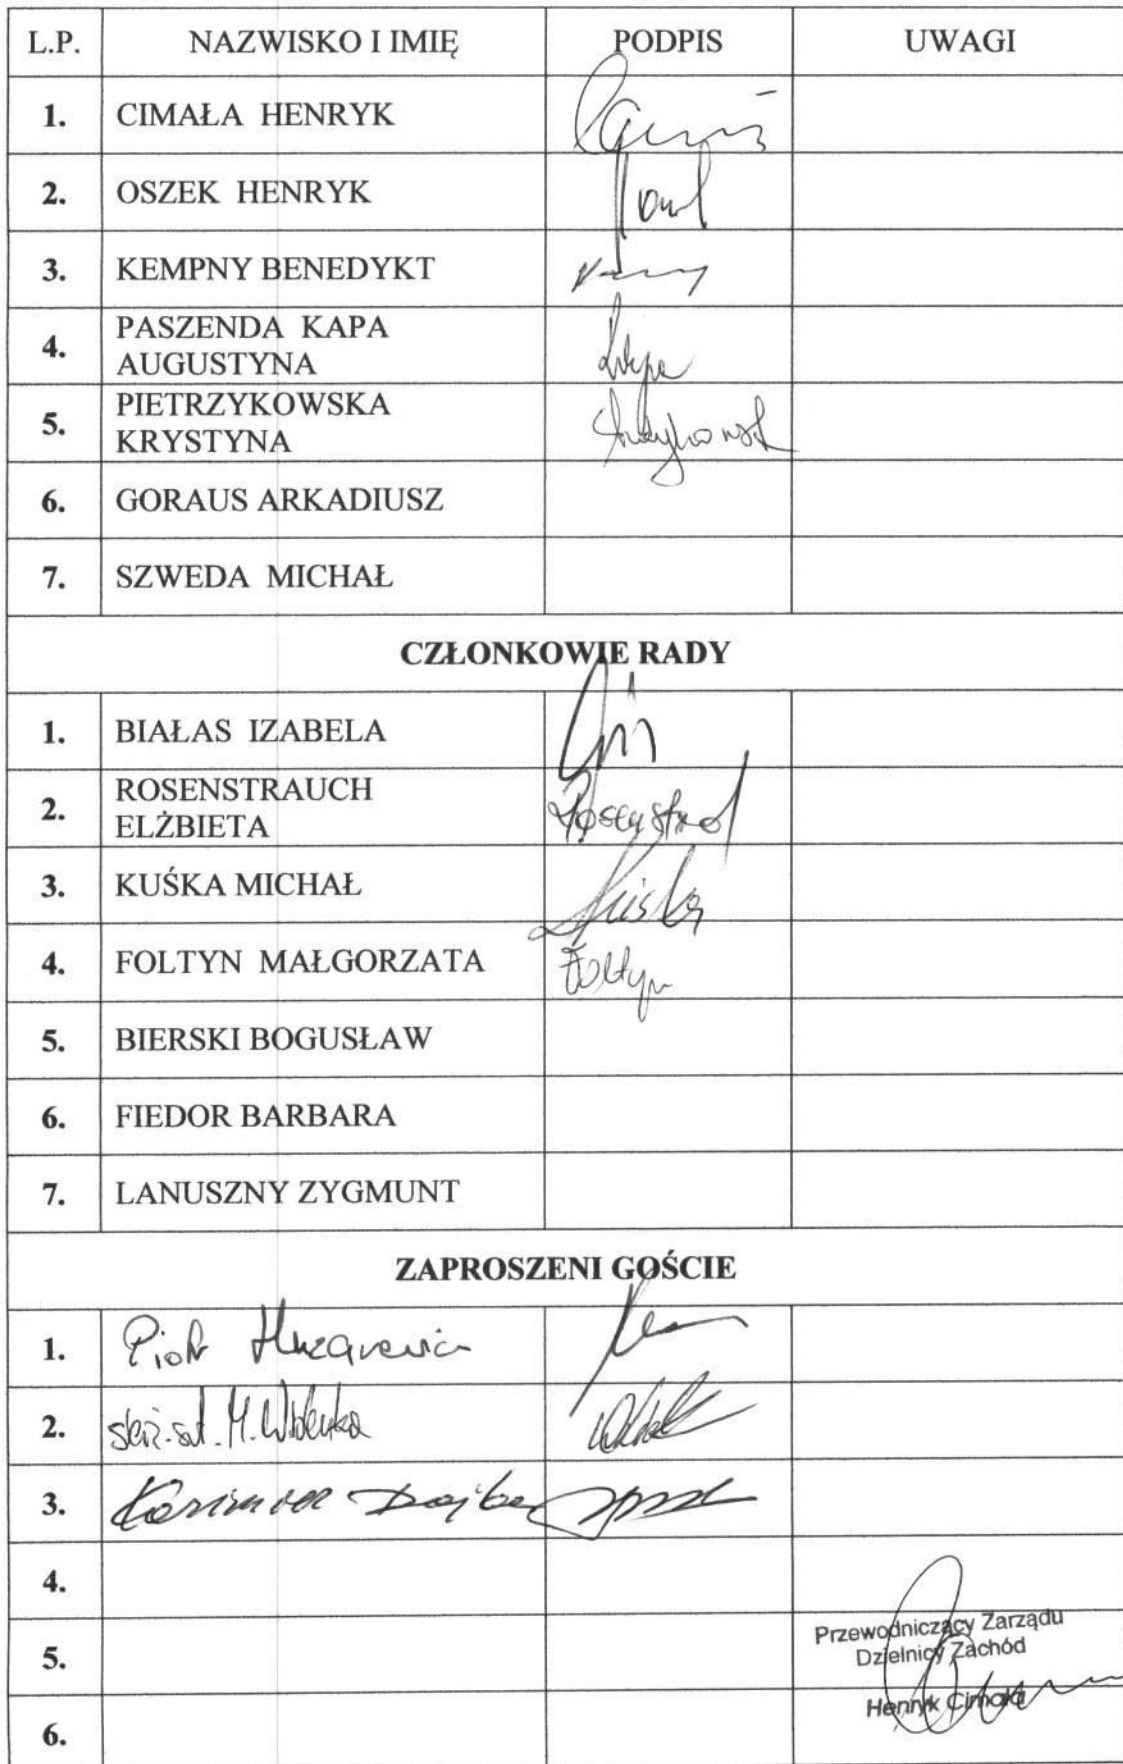 L.P. NAZWISKO I IMIĘ PODPIS UWAGI
1. CIMAŁA HENRYK
2. OSZEK HENRYK
3. KEMPNY BENEDYKT
4. PASZENDA KAPA
AUGUSTYNA
5. PIETRZYKOWSKA
KRYSTYNA
6. GORAUS ARKADIUSZ
7. SZWEDA MICHAŁ
CZŁONKOWIE RADY
1. BIAŁAS IZABELA
2. ROSENSTRAUCH
ELŻBIETA
3. KUŚKA MICHAŁ
4. FOLTYN MAŁGORZATA Foltyn
5. BIERSKI BOGUSŁAW
6. FIEDOR BARBARA
7. LANUSZNY ZYGMUNT
ZAPROSZENI GOŚCIE
1. Piotr
2.
3. Kazimierz
4.
Przewodniczący Zarządu
5. Dzielnicy Zachód
Henryk Cimała
6.